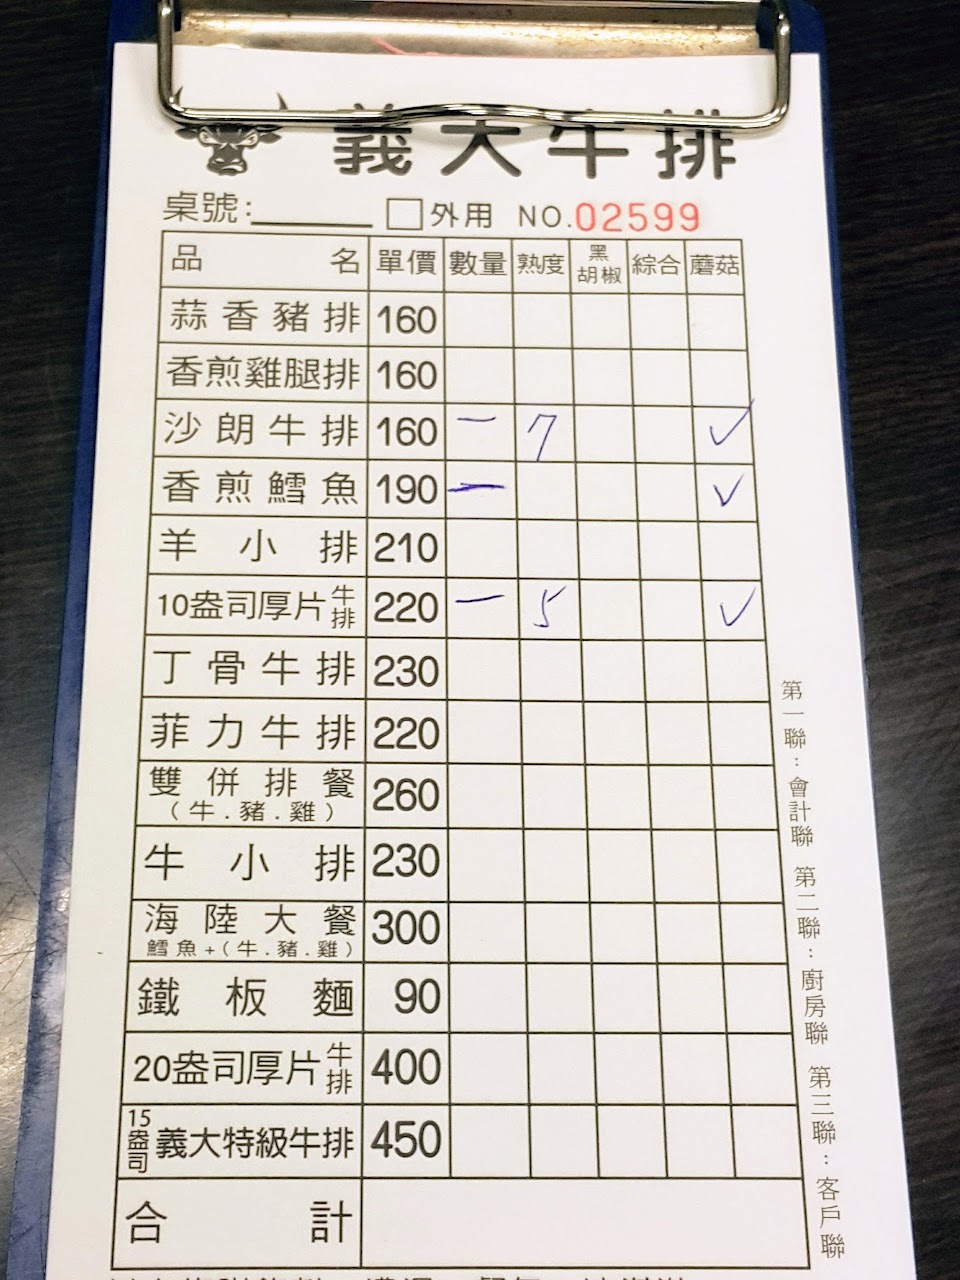 義大牛排
桌號:______ □外用 NO.02599
品名 單價 數量 熟度 黑胡椒 綜合 蘑菇
蒜香豬排 160
香煎雞腿排 160
沙朗牛排 160 一 7 ✓
香煎鱈魚 190 一 ✓
羊小排 210
10盎司厚片牛排 220 一 5 ✓
丁骨牛排 230
菲力牛排 220
雙併排餐 260
(牛.豬.雞)
牛小排 230
海陸大餐 300
鱈魚+(牛.豬.雞)
鐵板麵 90
20盎司厚片牛排 400
15盎司義大特級牛排 450
合計
第一聯:會計聯 第二聯:廚房聯 第三聯:客戶聯